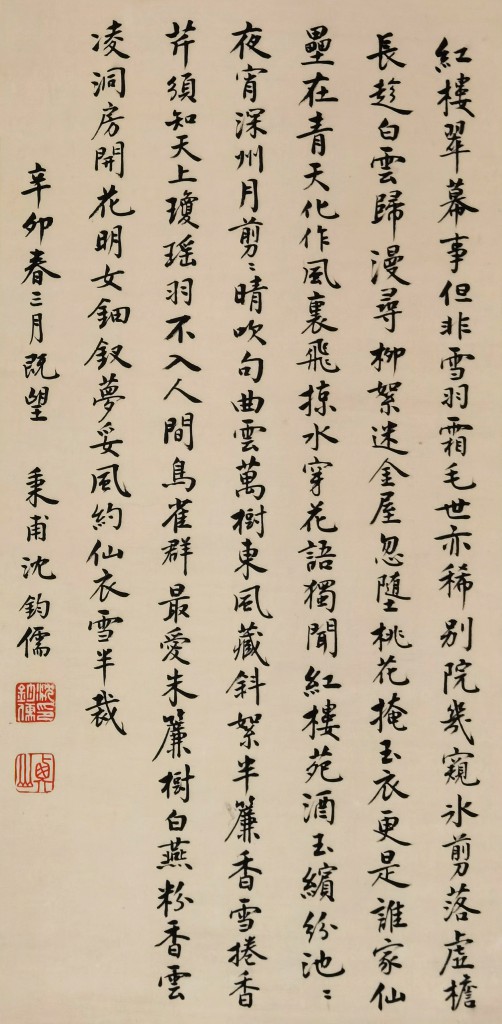 紅樓翠幕事但非雪羽霜毛世亦稀別院幾窺氷剪落虛檐
長趁白雲歸漫尋柳絮迷金屋忽墮桃花掩玉衣更是誰家仙
壘在青天化作風裏飛掠水穿花語獨聞紅樓苑酒玉繽紛池〻
夜宵深州月剪〻晴吹句曲雲萬樹東風藏斜絮半簾香雪捲香
芹須知天上瓊瑤羽不入人間鳥雀群最愛朱簾樹白燕粉香雲
凌洞房開花明女鈿釵夢妥風約仙衣雪半裁
辛卯春三月既望 秉甫沈鈞儒
沈鈞儒